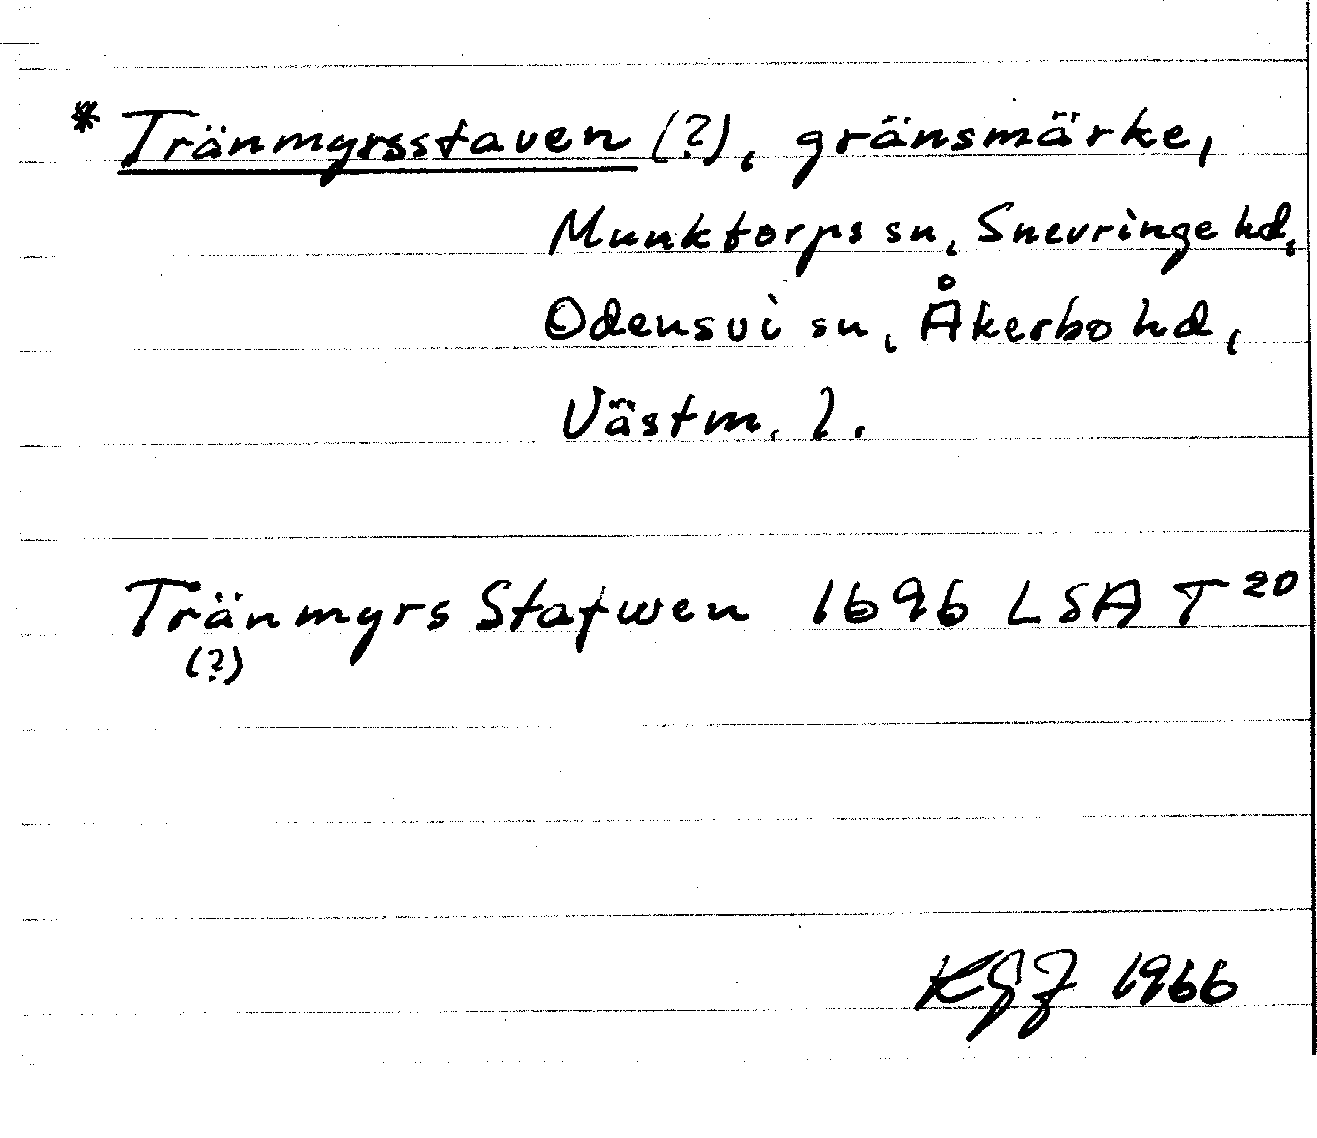 * Tränmyrsstaven (?), gränsmärke,
Munktorps sn, Snevringe hd,
Odensvi sn, Åkerbo hd,
Västm. l.
Tränmyrs Stafwen 1696 LSA T 20
(?)
KGJ 1966